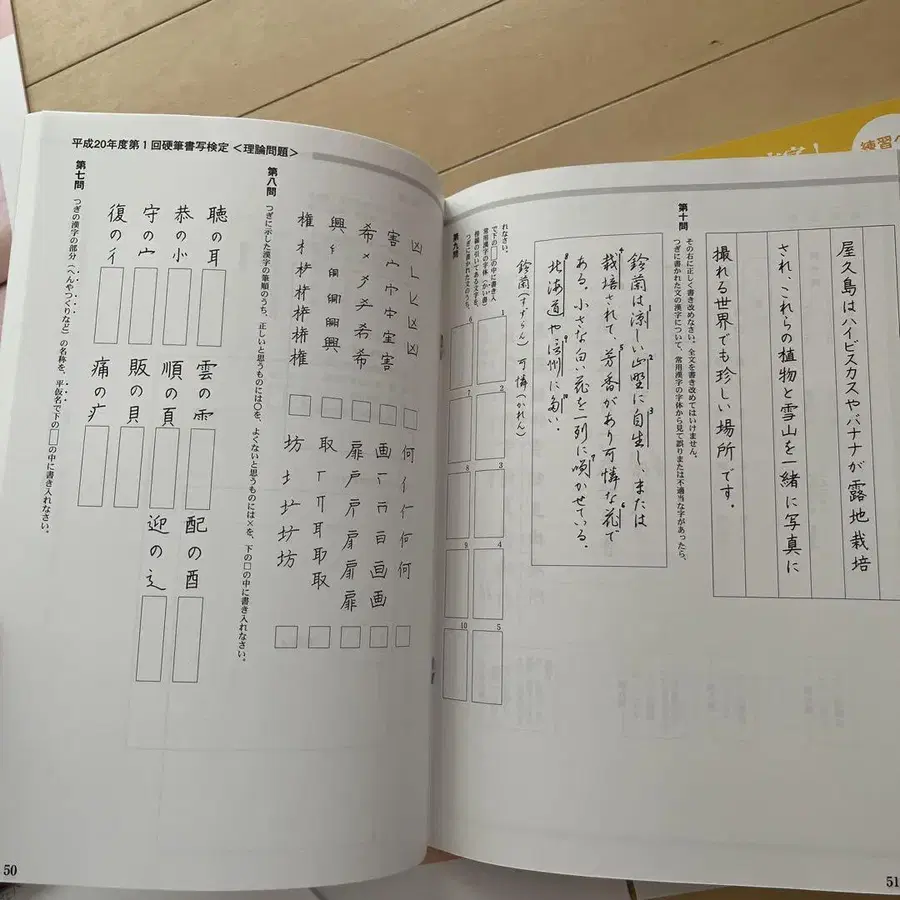 平成20年度第1回硬筆書写検定<理論問題>
第七問 つぎの漢字の部分(へんやつくりなど)の名称を、平仮名で下の□の中に書き入れなさい。
聴の耳
恭の㣺
守の宀
復の彳
雲の⻗
順の頁
販の貝
痛の疒
配の酉
迎の辶
第八問 つぎに示した漢字の筆順のうち、正しいと思うものには○を、よくないと思うものには×を、下の□の中に書き入れなさい。
凶
害
希
興
権
何
画
扉
取
坊
50
第九問
つぎに書かれた文のうち、
傍線の引いてある文字を、
常用漢字の字体(かい書)
で下の□の中に書き入
れなさい。
鈴蘭は涼しい山野に自生し、または
栽培されて、芳香があり可憐な花で
ある。小さな白い花を一列に咲かせている。
北海道や信州に多い。
鈴蘭(すずらん) 可憐(かれん)
1
2
3
4
5
6
7
8
9
10
第十問
つぎに書かれた文の漢字について、常用漢字の字体から見て誤りまたは不適当な字があったら、
その右に正しく書き改めなさい。全文を書き改めてはいけません。
屋久島はハイビスカスやバナナが露地栽培
され、これらの植物と雪山を一緒に写真に
撮れる世界でも珍しい場所です。
51
練習